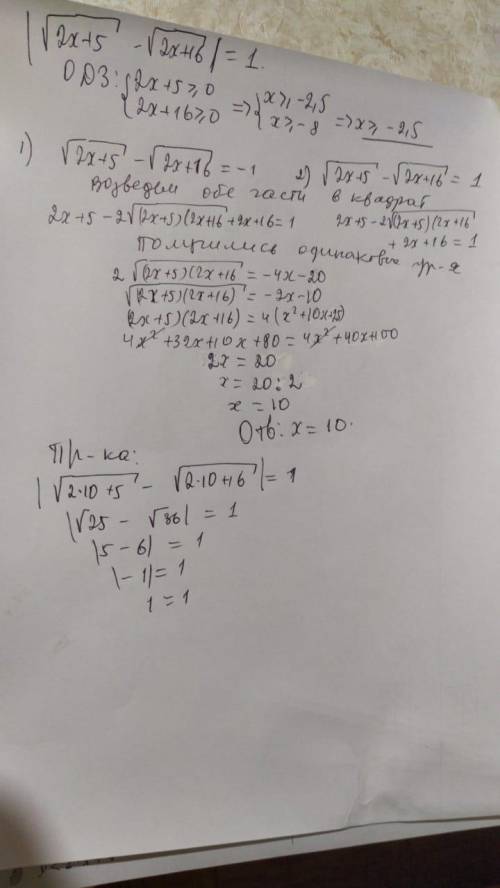 |√2x+5 - √2x+16| = 1.
ОДЗ: { 2x+5 ≥ 0 2x+16 ≥ 0 => { x ≥ -2,5 x ≥ -8 => x ≥ -2,5
1) √2x+5 - √2x+16 = -1 2) √2x+5 - √2x+16 = 1
Возведём обе части в квадрат
2x+5 - 2√(2x+5)(2x+16 + 2x+16 = 1 2x+5 - 2√(2x+5)(2x+16
+ 2x+16 = 1
Получились одинаковые ур-я
2√(2x+5)(2x+16 = -4x-20
√(2x+5)(2x+16) = -2x-10
(2x+5)(2x+16) = 4(x²+10x+25)
4x²+32x+10x+80 = 4x²+40x+100
2x = 20
x = 20:2
x = 10
Отв: x = 10.
Пр-ка:
|√2·10+5 - √2·10+16| = 1
|√25 - √36| = 1
|5-6| = 1
|-1| = 1
1 = 1